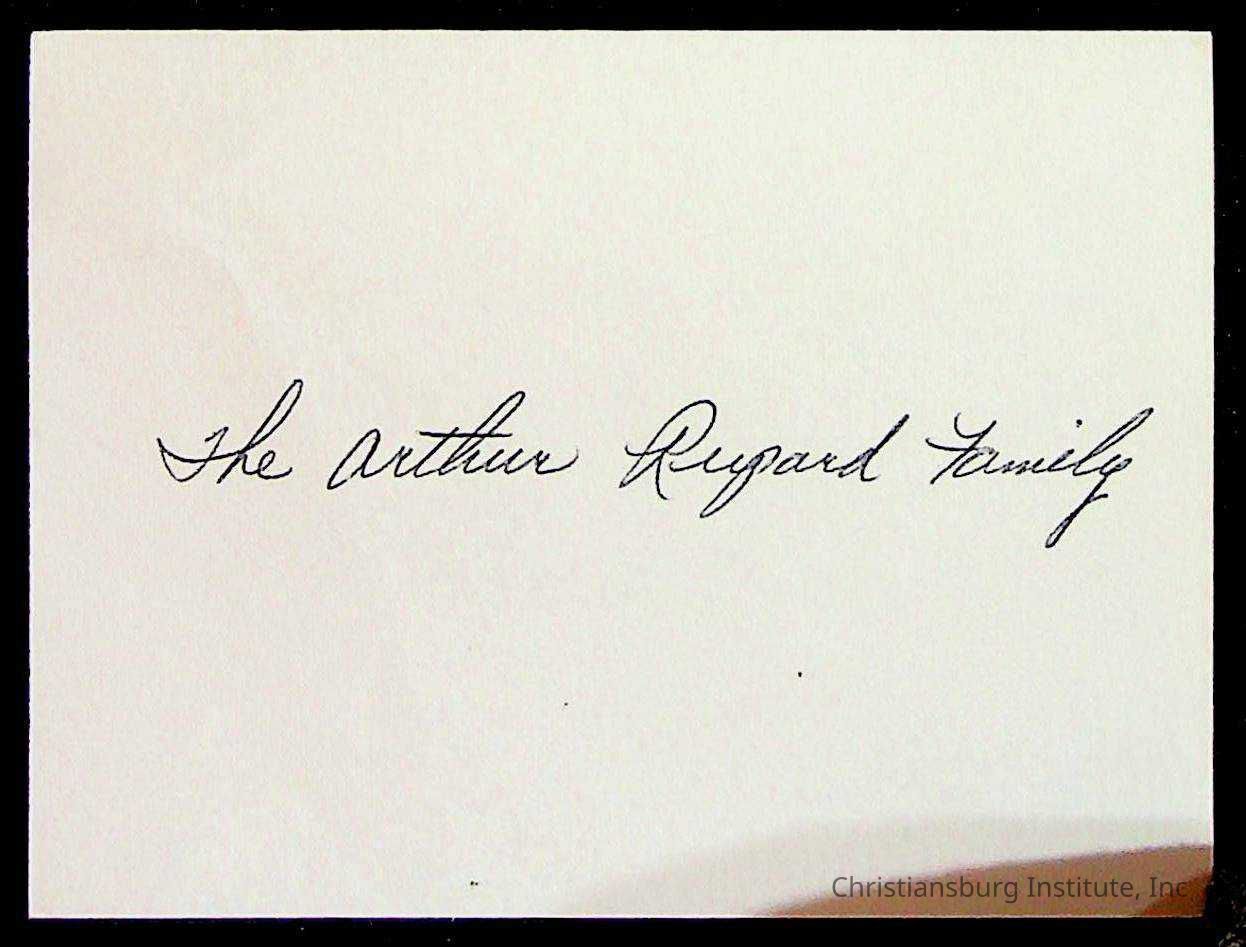 The Arthur Rupard Family
Christiansburg Institute, Inc